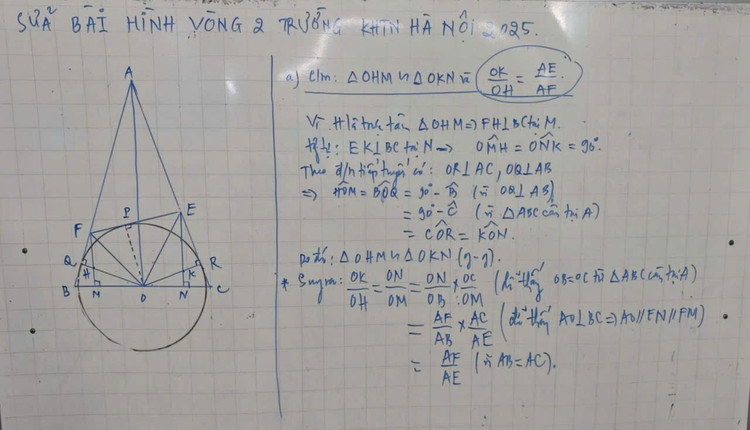 SỬA BÀI HÌNH VÒNG 2 TRƯỜNG KHTN HÀ NỘI 2025.
a) C/m: △OHM ∽ △OKN và OK/OH = AE/AF.
Vì H là trực tâm △OHM => FH⊥BC tại M.
Tg tự: EK⊥BC tại N => OM̂H = ON̂K = 90°.
Theo đ/n tiếp tuyến có: OR⊥AC, OQ⊥AB
=> HÔM = BÔQ = 90° - B̂ (vì OQ⊥AB)
= 90° - Ĉ (vì △ABC cân tại A)
= CÔR = KÔN.
Do đó: △OHM ∽ △OKN (g-g).
* Suy ra: OK/OH = ON/OM = ON/OB × OC/OM (dễ thấy OB=OC từ △ABC cân tại A)
= AF/AB × AC/AE (dễ thấy AO⊥BC => AO//EN//FM)
= AF/AE (vì AB=AC).
A
P
E
F
Q
H
K
R
B
M
O
N
C